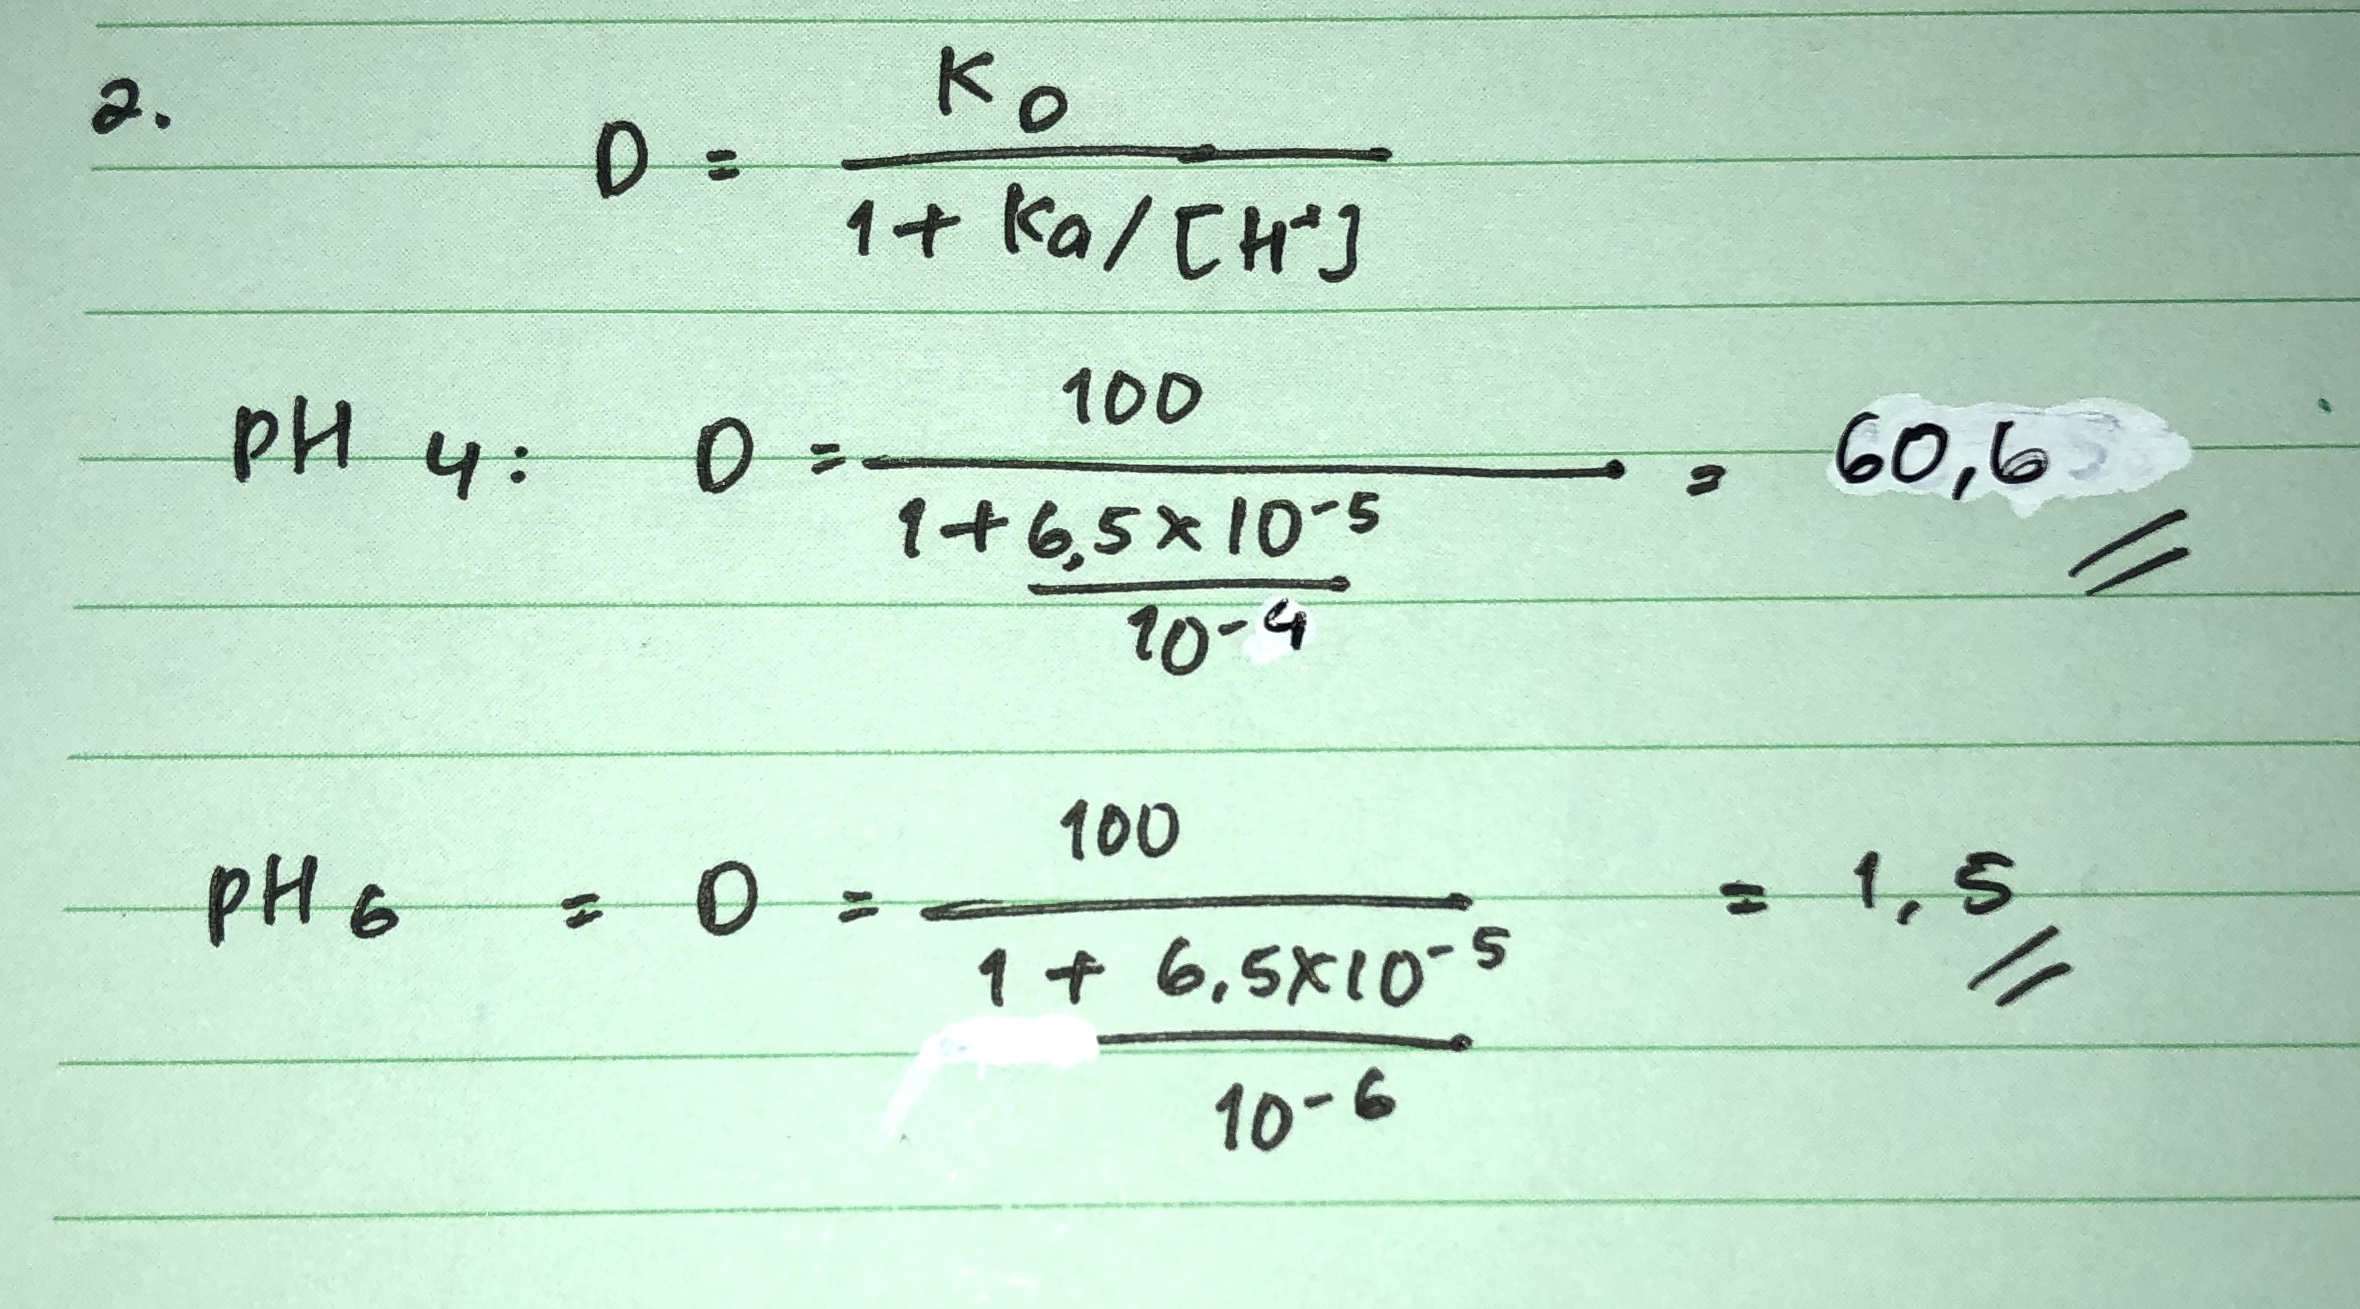 2.
D = K D / 1 + Ka / [H⁺]
pH 4: D = 100 / 1 + 6,5 x 10⁻⁵ / 10⁻⁴ = 60,6
pH 6 = D = 100 / 1 + 6,5 x 10⁻⁵ / 10⁻⁶ = 1,5